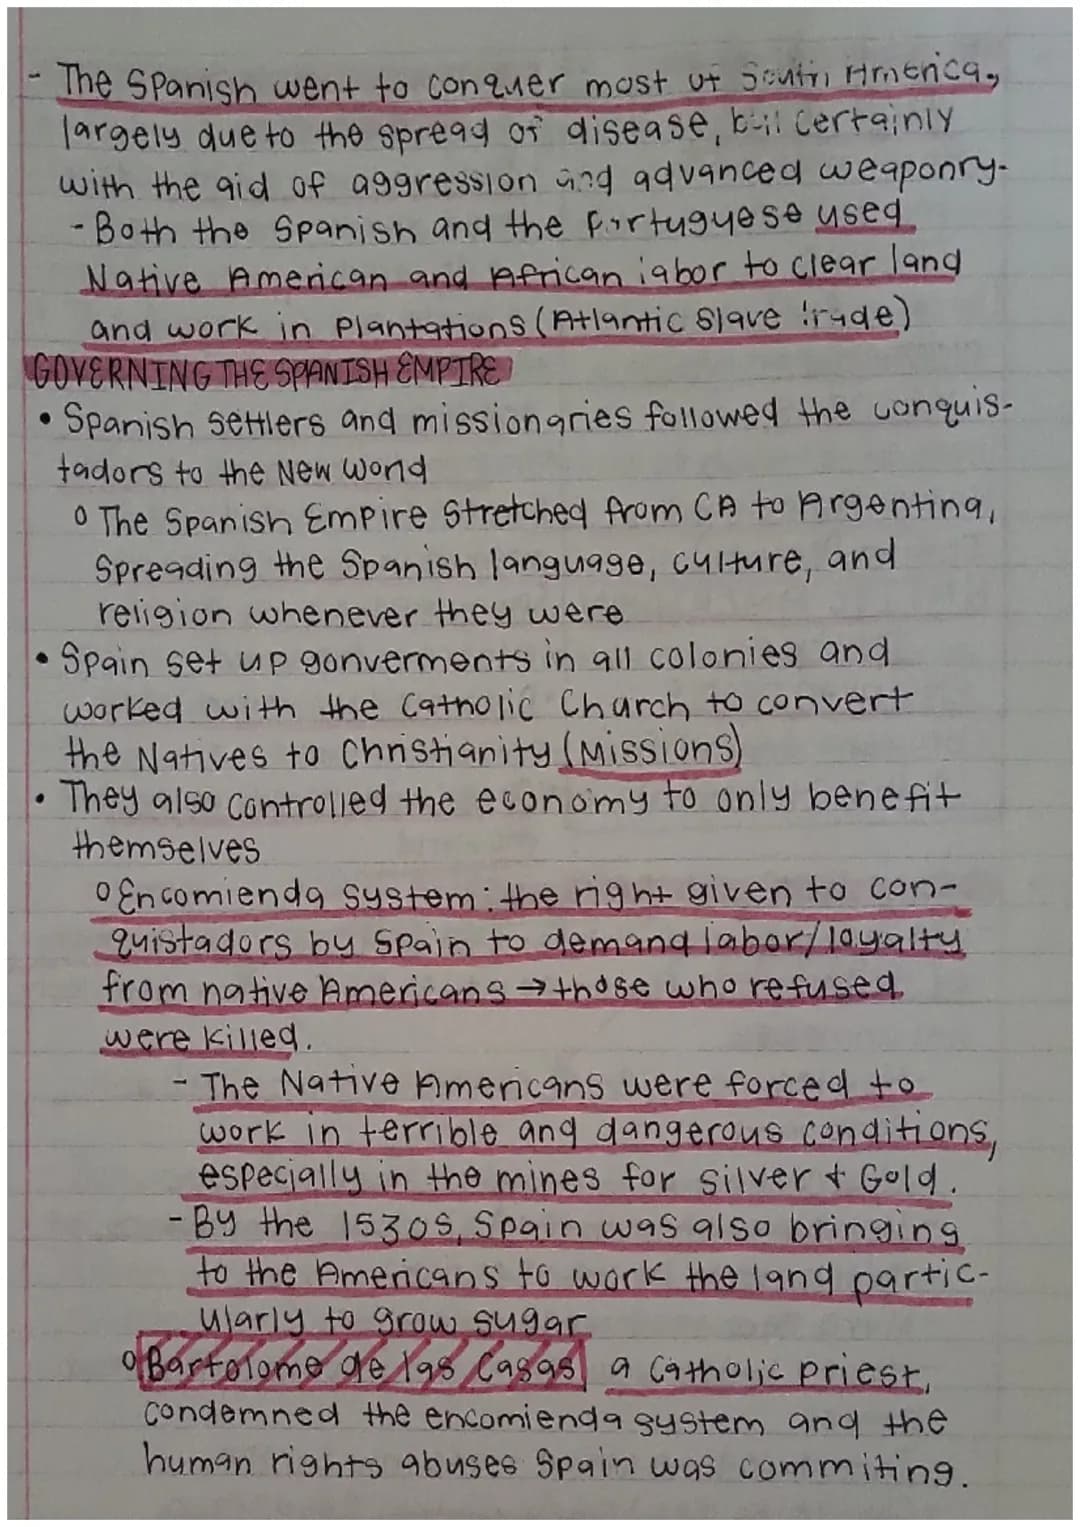 - The Spanish went to conquer most of South America,
largely due to the spread of disease, but certainly
with the aid of aggression and advanced weaponry.
- Both the Spanish and the Portuguese used
Native American and African labor to clear land
and work in Plantations (Atlantic Slave trade)
GOVERNING THE SPANISH EMPIRE
• Spanish settlers and missionaries followed the conquis-
tadors to the New World
o The Spanish Empire Stretched from CA to Argentina,
Spreading the Spanish language, culture, and
religion whenever they were
• Spain set up gonverments in all colonies and
worked with the Catholic Church to convert
the Natives to Christianity (Missions)
• They also controlled the economy to only benefit
themselves
o Encomienda System: the right given to con-
quistadors by Spain to demand labor/loyalty
from native Americans → those who refused
were killed.
- The Native Americans were forced to
work in terrible and dangerous conditions,
especially in the mines for silver + Gold.
- By the 1530s, Spain was also bringing
to the Americans to work the land partic-
ularly to grow sugar
o Bartolome de las Casas a Catholic priest,
condemned the encomienda system and the
human rights abuses Spain was commiting.